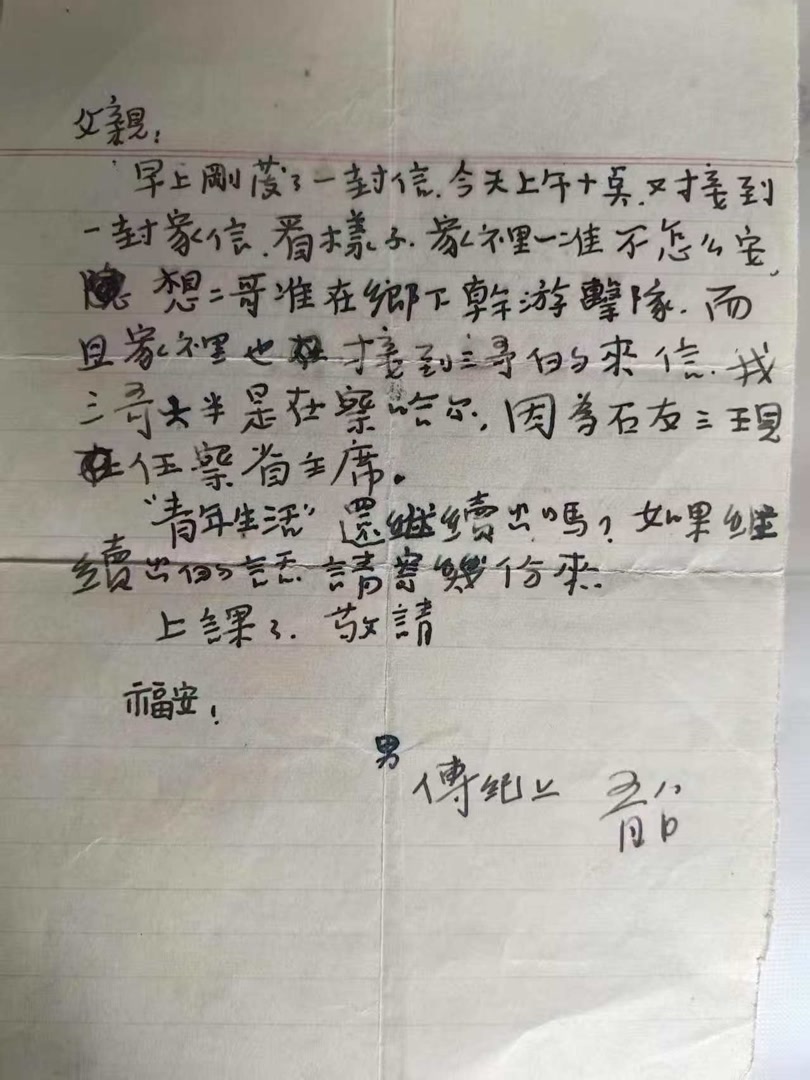 父親：
早上剛發了一封信.今天上午十点.又接到
一封家信.看樣子.家裡一准不怎么安,
想二哥准在鄉下幹游擊隊.而
且家裡也接到三哥的來信.我
三哥大半是在察哈尔,因為石友三現
在任察省主席。
"青年生活"還継續出嗎？如果継
續出的話.請寄幾份來.
上課了.敬請
福安！
男
傅紀上
五月 日